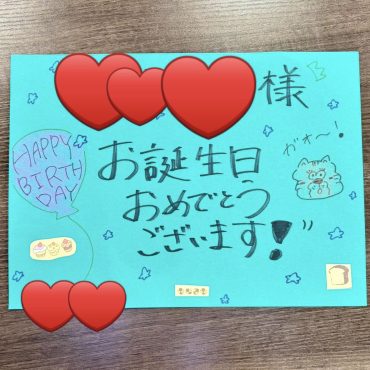 様
お誕生日
おめでとう
ございます！
HAPPY
BIRTH
DAY
がオ〜！